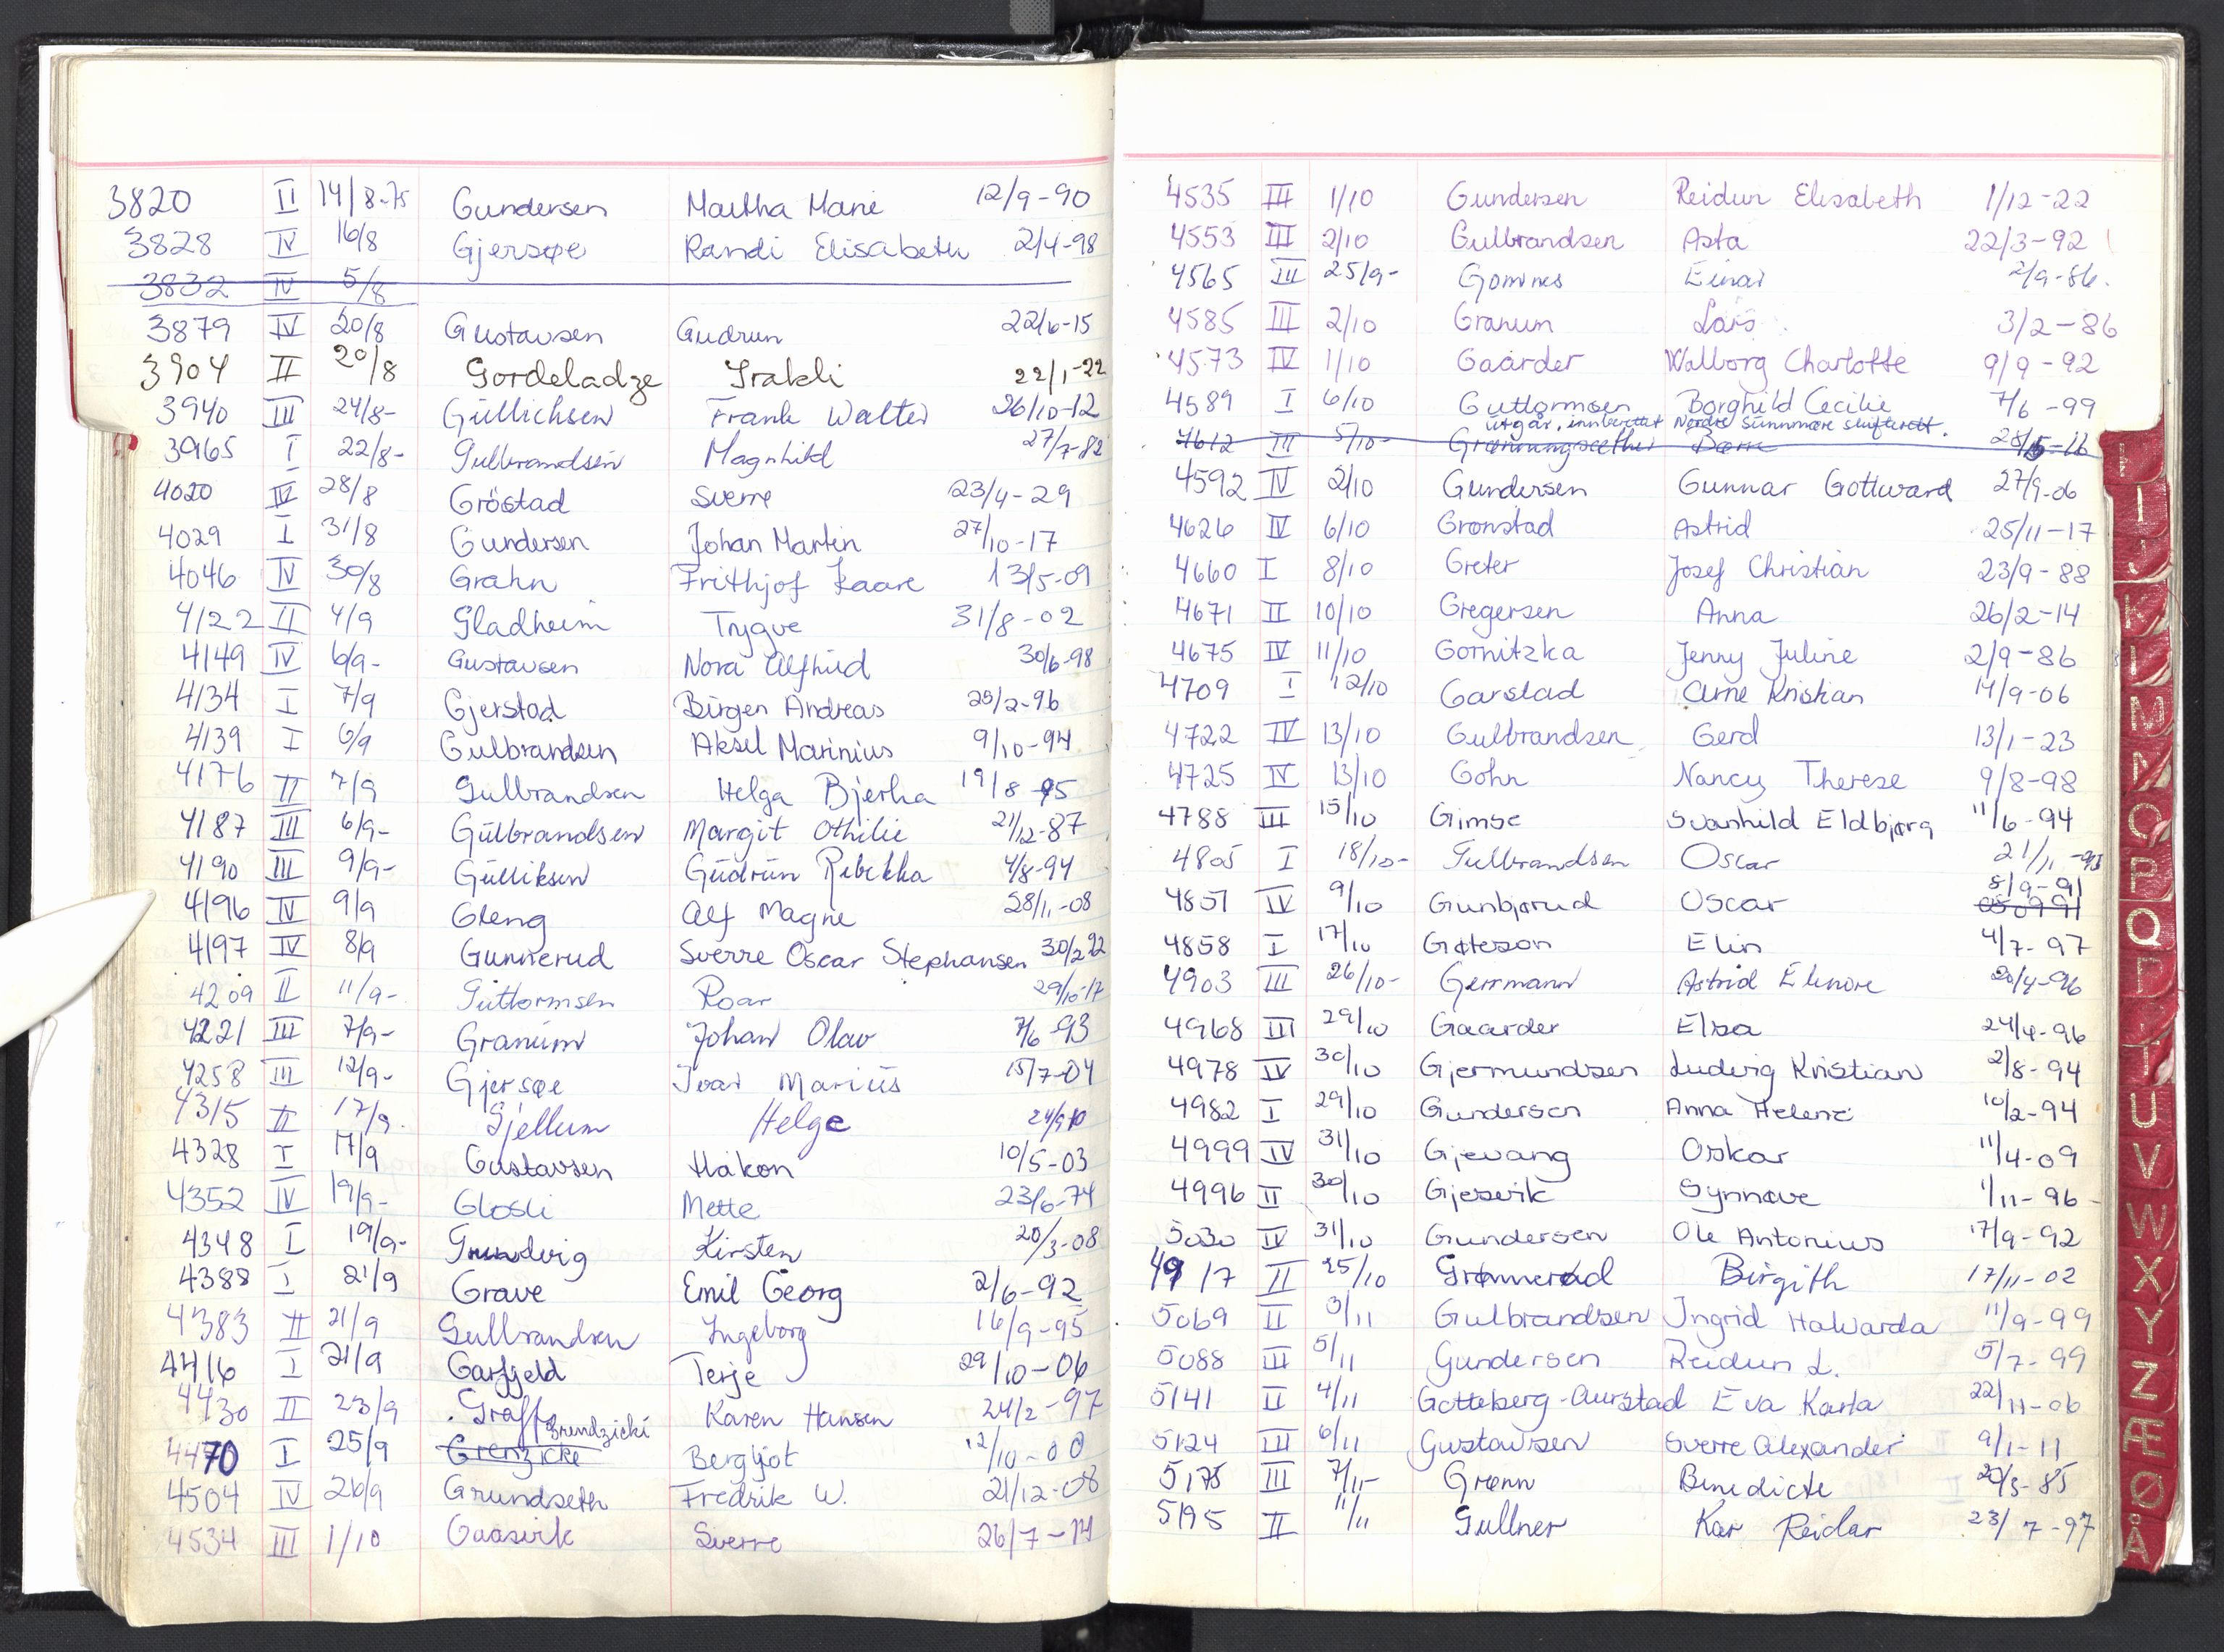 3820 II 14/8-75 Gundersen Martha Marie 12/9-90
3828 IV 16/8 Gjersøe Randi Elisabeth 2/4-98
3832 IV 5/8
3879 IV 20/8 Gustavsen Gudrun 22/6-15
3904 II 20/8 Gordeladze Irakli 22/1-22
3940 III 24/8- Gullichsen Frank Walter 26/10-12
3965 I 22/8- Gulbrandsen Magnhild 27/7-82
4020 IV 28/8 Gröstad Sverre 23/4-29
4029 I 31/8 Gundersen Johan Martin 27/10-17
4046 IV 30/8 Grahn Frithjof Kaare 13/5-09
4122 II 4/9 Gladheim Trygve 31/8-02
4149 IV 6/9- Gustavsen Nora Alfhild 30/6-98
4134 I 7/9 Gjerstad Birger Andreas 25/2-96
4139 I 6/9 Gulbrandsen Aksel Marinius 9/10-94
4176 II 7/9 Gulbrandsen Helga Bjerka 19/8-95
4187 III 6/9- Gulbrandsen Margit Othilie 21/12-87
4190 III 9/9- Gulliksen Gudrun Rebekka 4/8-94
4196 IV 9/9 Gleng Alf Magne 28/11-08
4197 IV 8/9 Gunnerud Sverre Oscar Stephansen 30/2 92
4209 II 11/9- Guttormsen Roar 29/10-17
4221 III 7/9- Granum Johan Olav 7/6-93
4258 III 12/9- Gjersøe Ivar Marius 15/7-04
4315 II 17/9. Gjellum Helge 24/9 10
4328 I 17/9 Gustavsen Håkon 10/5-03
4352 IV 19/9- Glosli Mette 23/6-74
4348 I 19/9- Grundvig Kirsten 20/3-08
4388 I 21/9 Grave Emil Georg 2/6-92
4383 II 21/9 Gulbrandsen Ingeborg 16/9-95
4416 I 21/9 Garfjeld Terje 29/10-06
4430 II 23/9 Graff Karen Hansen 24/2-97
Grendzicki
4470 I 25/9 Grenzicke Bergljot 12/10-00
4504 IV 26/9 Grundseth Fredrik W. 21/12-08
4534 III 1/10 Gaasvik Sverre 26/7-14
4535 III 1/10 Gundersen Reidun Elisabeth 1/12-22
4553 III 2/10 Gulbrandsen Asta 22/3-92
4565 III 25/9- Gomnes Einar 2/9-86.
4585 III 2/10 Granum Lars 3/2-86
4573 IV 1/10 Gaarder Walborg Charlotte 9/9-92
4589 I 6/10 Guttormsen Borghild Cecilie 7/6-99
utgår, innberettet Nordre Sunnmøre skifterett.
4612 III 5/10- Grønningsæther Børre 28/5-16
4592 IV 2/10 Gundersen Gunnar Gottward 27/9-06
4626 IV 6/10 Grønstad Astrid 25/11-17
4660 I 8/10 Greter Josef Christian 23/9-88
4671 II 10/10 Gregersen Anna 26/2-14
4675 IV 11/10 Gornitzka Jenny Juline 2/9-86
4709 I 12/10 Garstad Arne Kristian 14/9-06
4722 IV 13/10 Gulbrandsen Gerd 13/1-23
4725 IV 13/10 Gohn Nancy Therese 9/8-98
4788 III 15/10 Gimse Svanhild Eldbjørg 11/6-94
4805 I 18/10- Gulbrandsen Oscar 21/11-93
8/9-91
4851 IV 9/10 Gunbjørud Oscar 05 09 91
4858 I 17/10 Gøteson Elin 4/7-97
4903 III 26/10- Germann Astrid Elinore 20/4-96
4968 III 29/10 Gaarder Elsa 24/4-96
4978 IV 30/10 Gjermundsen Ludvig Kristian 2/8-94
4982 I 29/10 Gundersen Anna Helene 10/2-94
4999 IV 31/10 Gjevang Oskar 11/4-09
4996 II 30/10 Gjesvik Synnøve 1/11-96-
5030 IV 31/10 Gundersen Ole Antonius 17/9-92
4917 II 25/10 Grønnerød Birgith 17/11-02
5069 II 3/11 Gulbrandsen Ingrid Halvarda 11/9-99
5088 III 5/11 Gundersen Reidun L. 5/7-99
5141 II 4/11 Gotteberg-Aurstad Eva Karla 22/11-06
5124 III 6/11 Gustavsen Sverre Alexander 9/1-11
5175 III 7/11- Grønn Benedicte 20/3-85
5195 II 11/11 Gullner Kar Reidar 23/7-97
I
J
K
L
M
N
O
P
Q
R
T
U
V
W
X
Y
Z
Æ
Ø
Å